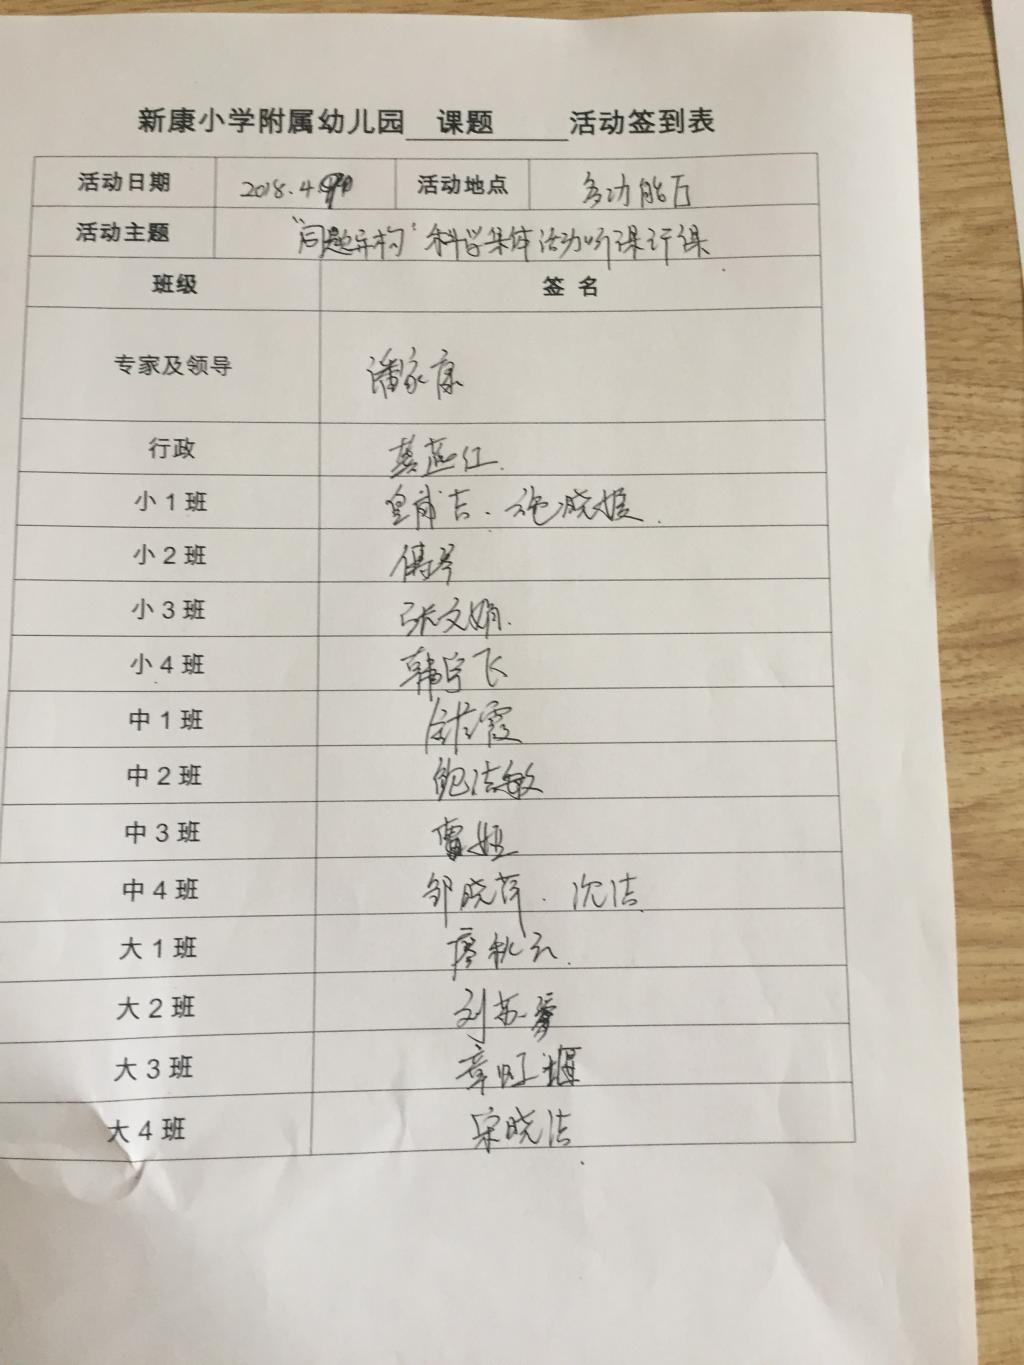 新康小学附属幼儿园 课题 活动签到表
活动日期 2018.4. 活动地点 多功能厅
活动主题 "问题异构"科学集体活动听课评课
班级 签 名
专家及领导 潘家康
行政 龚燕红.
小1班 皇甫吉.
小2班
小3班 张文娟.
小4班 韩宇飞
中1班 霞
中2班 鲍洁敏
中3班 曹娅
中4班 邹晓萍. 沈洁
大1班 廖秋云.
大2班 刘苏
大3班 章
大4班 宋晓洁